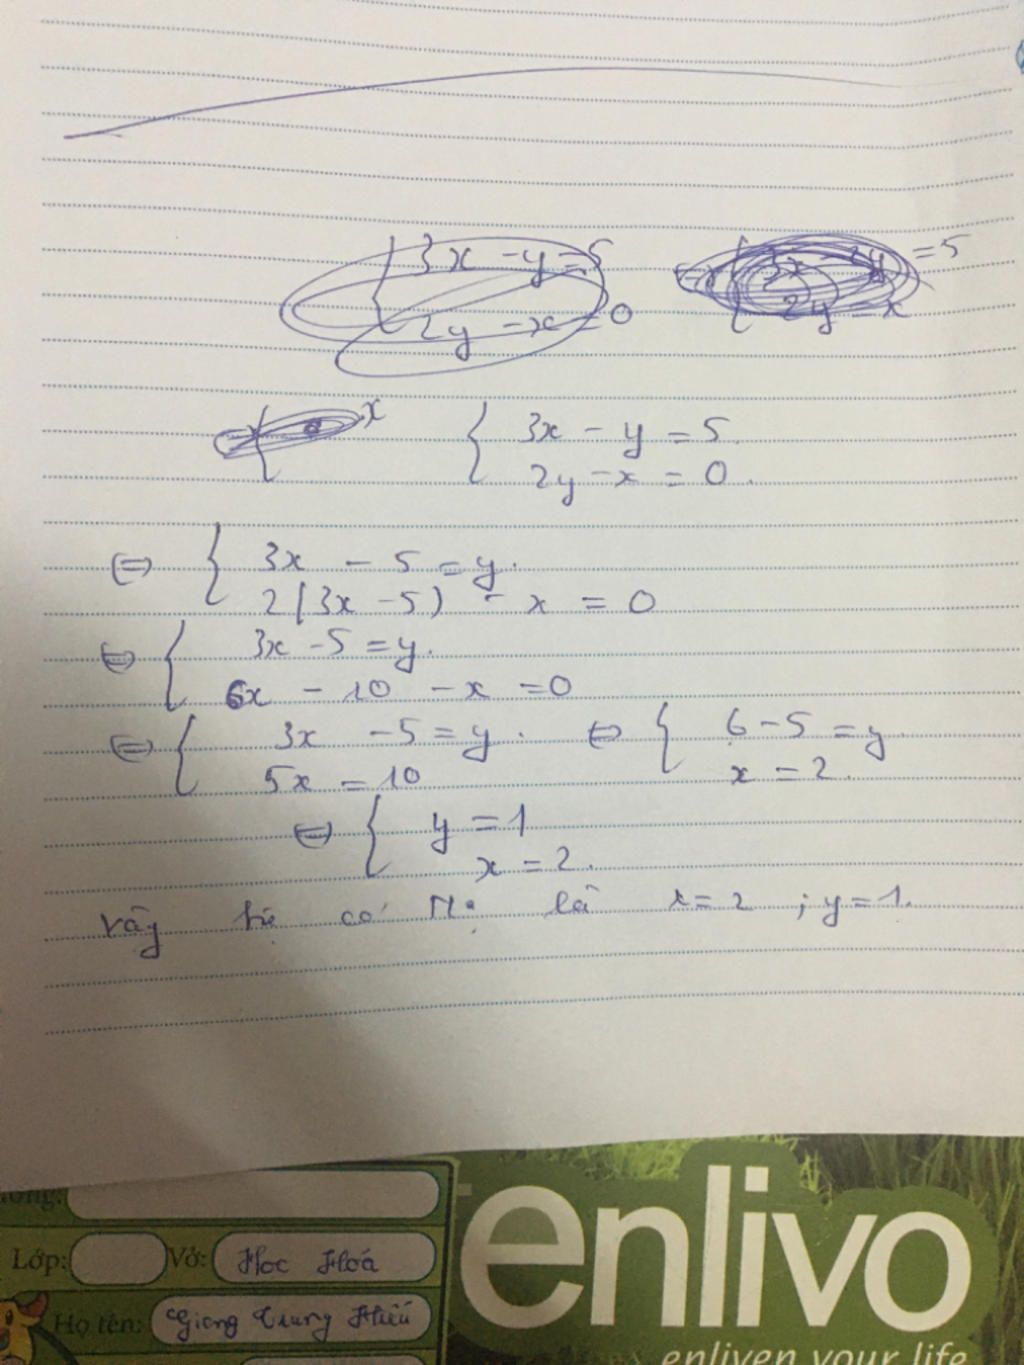 { 3x - y = 5
2y - x = 0
= 5
x
{ 3x - y = 5.
2y - x = 0.
⇔ { 3x - 5 = y.
2(3x - 5) - x = 0
⇔ { 3x - 5 = y.
6x - 10 - x = 0
⇔ { 3x - 5 = y. ⇔ { 6 - 5 = y.
5x = 10 x = 2.
⇔ { y = 1
x = 2.
vậy hệ có No là x = 2 ; y = 1.
Lớp: Vở: Học Hoá
Họ tên: Giang Trung Hiếu
enlivo
enliven your life